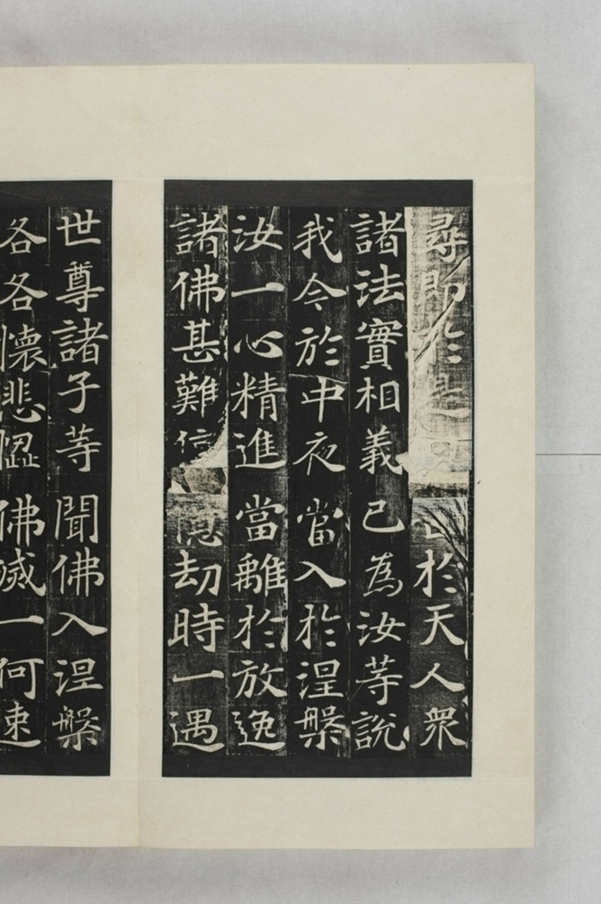 尋即於是於天人衆
諸法實相義已為汝等說
我今於中夜當入於涅槃
汝一心精進當離於放逸
諸佛甚難劫時一遇
世尊諸子等聞佛入涅槃
各各懷悲惱佛滅一何速